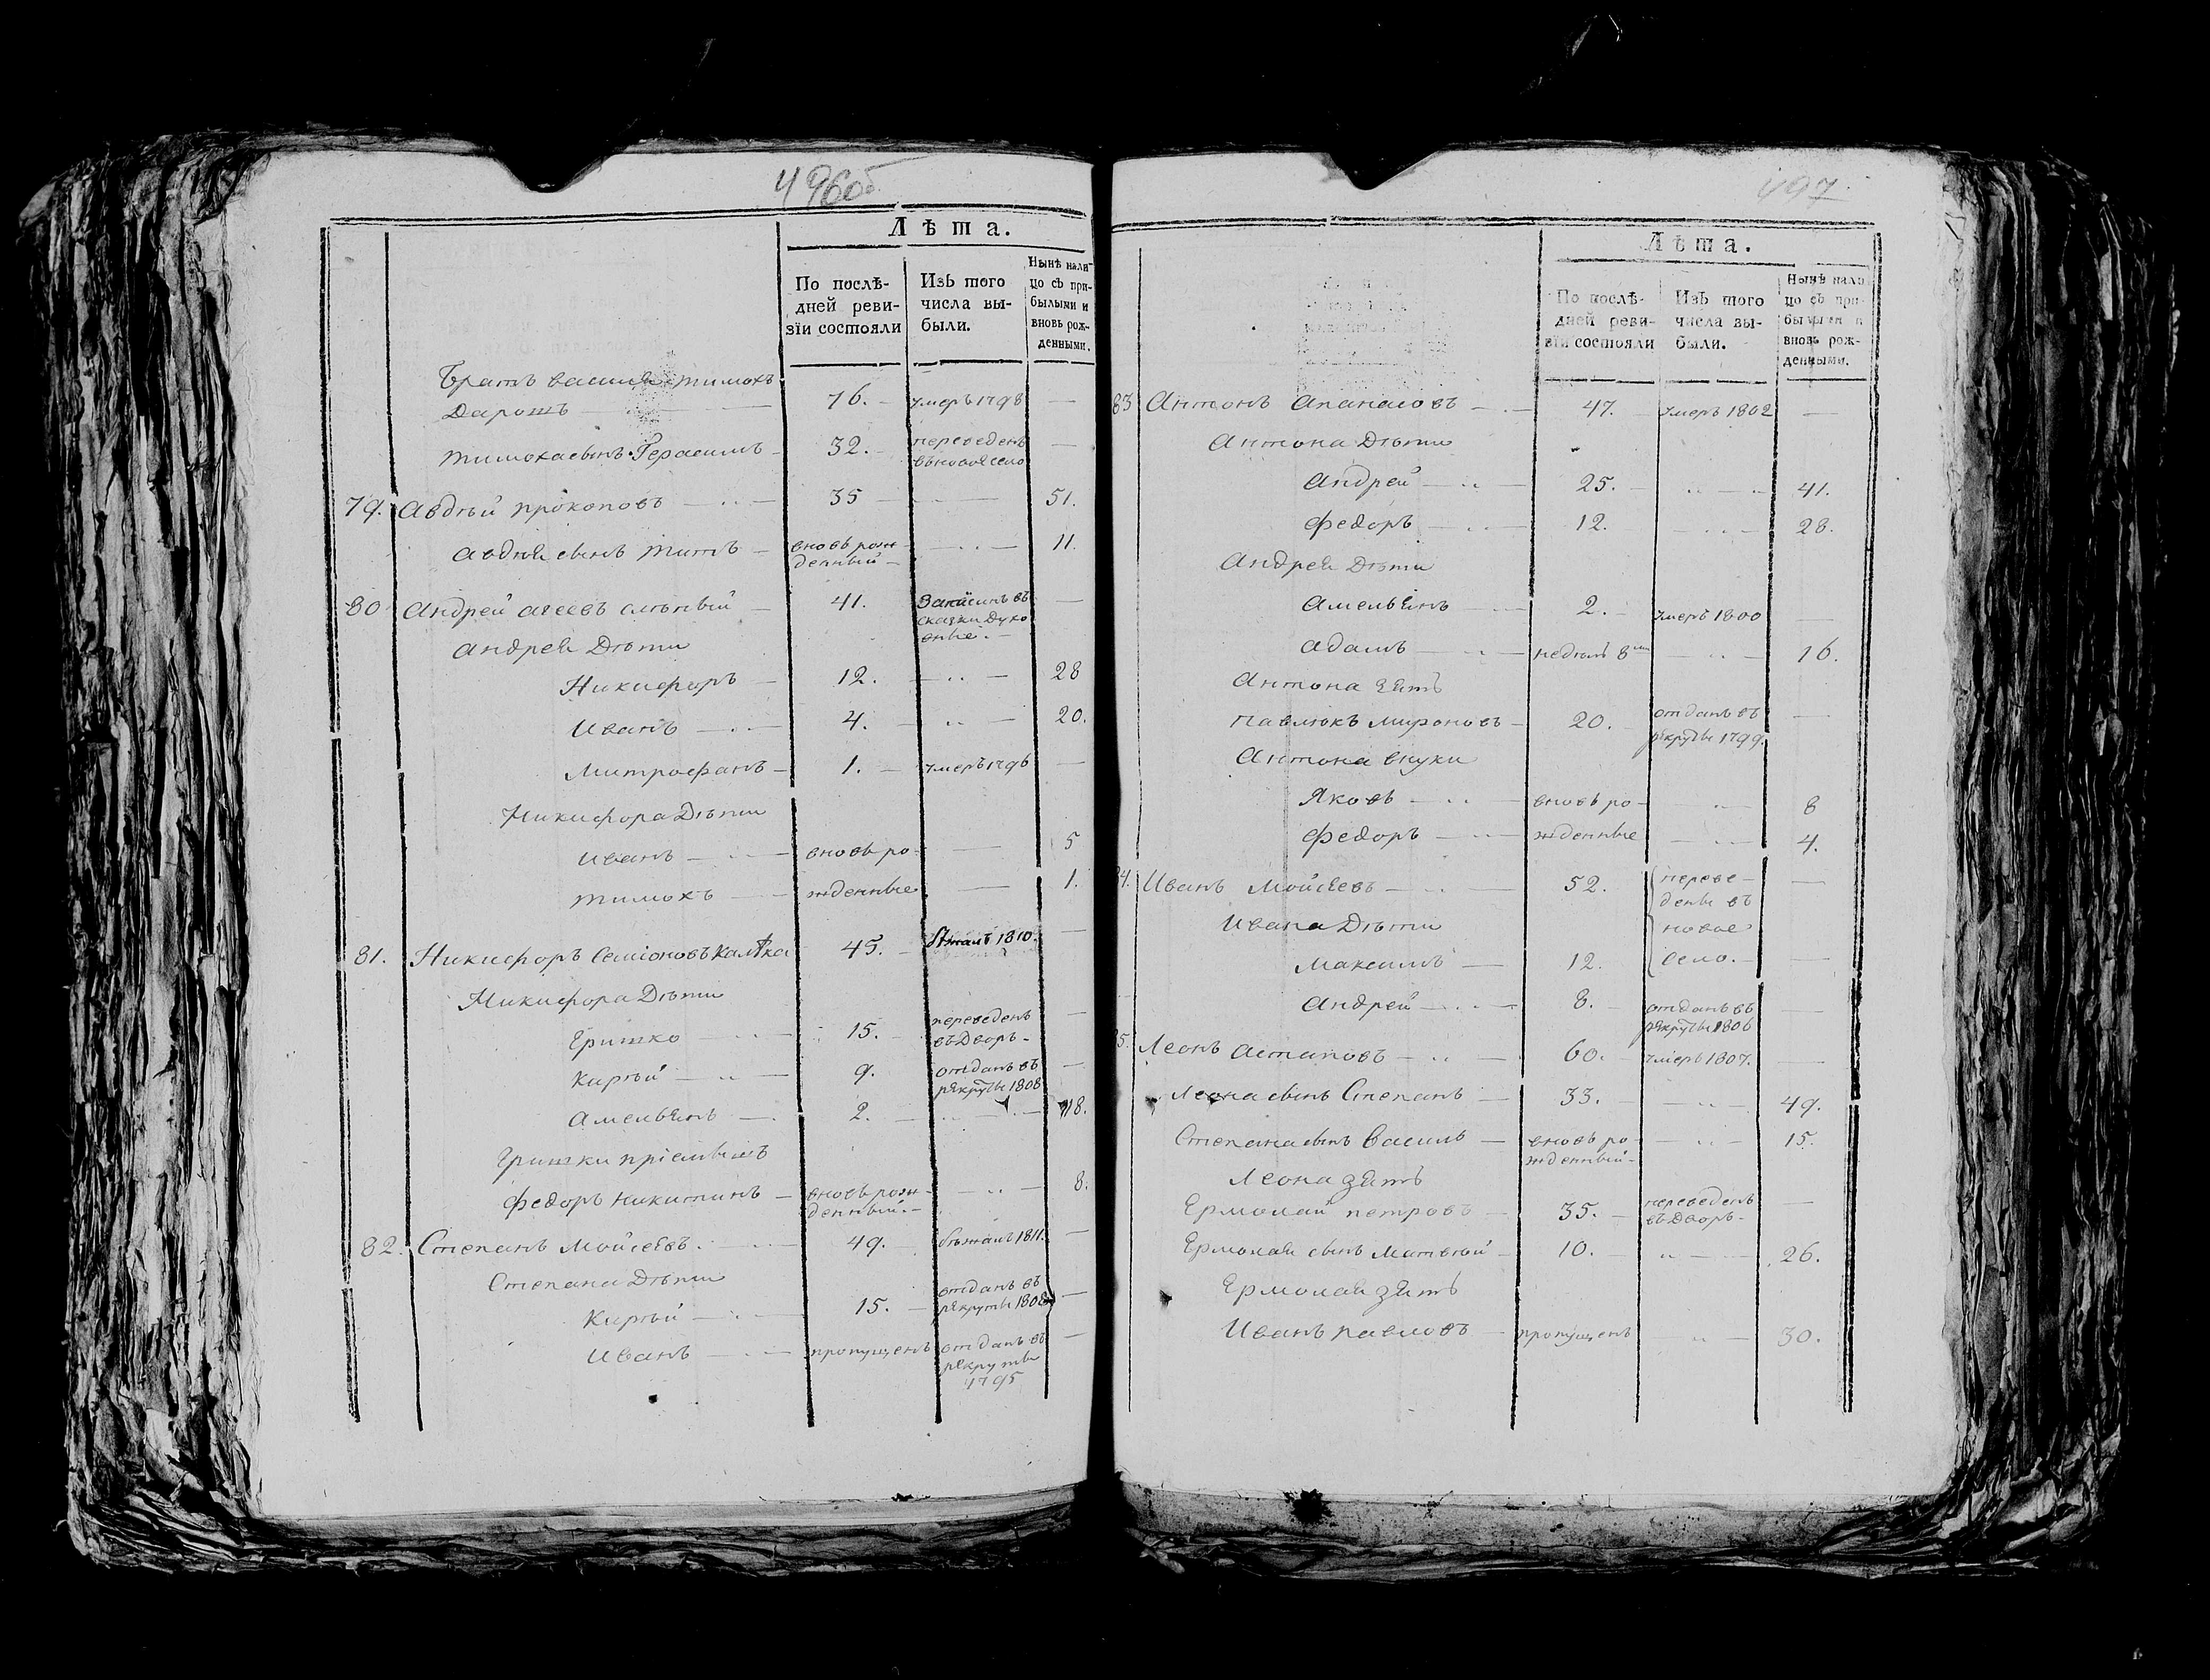 496об
Лѣта.
По послѣ-
дней реви-
зїи состояли
Изъ того
числа вы-
были.
Нынѣ нали-
цо съ при-
былыми и
вновь рож-
денными.
Братъ василея тимохъ
Дарошъ 76. умеръ 1798 —
тимохасынъ Герасимъ 32. переведенъ
въ новоя село —
79. Авдѣй прокоповъ 35 — 51.
авдѣя сынъ титъ вновь рож-
денный — 11.
80 Андрей агеевъ слѣпый 41. Записинъ въ
сказки духо
вные. —
андрея Дѣти
Никифоръ 12. — 28
Иванъ 4. — 20.
Митрофанъ 1. умеръ 1796 —
Никифора Дѣти
иванъ вновь ро- — 5
тимохъ жденные — 1.
81. Никифоръ Семioновъ калѣка 45. бѣжалъ 1810. —
Микифора Дѣти
Гришко 15. переведенъ
въ Дворъ —
Кирѣй 9. отданъ въ
рекруты 1808 —
амельянъ 2. — 18.
Гришки прiемышъ
федоръ никитинъ вновь рож-
денный. — 8.
82. Степанъ Мойсеевъ. 49. бѣжалъ 1811. —
Степана Дѣти
Кирѣй 15. отданъ въ
рекруты 1808 —
Иванъ пропущенъ отданъ въ
рекруты
1795 —
497
Лѣта.
По послѣ-
дней реви-
зїи состояли
Изъ того
числа вы-
были.
Нынѣ нали
цо съ при-
былыми и
вновь рож-
денными.
83 Антонъ Апанасовъ 47. умеръ 1802 —
Антона Дѣти
Андрей 25. — 41.
федоръ 12. — 28.
Андрея Дѣти
амельянъ 2. умеръ 1800 —
адамъ недѣль 8ми — 16.
Антона зять
павлюкъ мироновъ 20. отданъ въ
рекруты 1799. —
Антона внуки
Яковъ вновь ро- — 8
федоръ жденные — 4.
84. Иванъ Мойсеевъ 52. переве-
дены въ
новое
село. —
Ивана Дѣти
Максимъ 12. —
андрей 8. отданъ въ
рекруты 1806 —
85. Леонъ астаповъ 60. умеръ 1807. —
Леона сынъ Степанъ 33. — 49.
Степана сынъ Василь вновь ро-
жденный — 15.
Леона зять
Ермолай петровъ 35. переведенъ
въ Дворъ —
Ермолая сынъ Матвѣй 10. — 26.
Ермолая зять
Иванъ павловъ пропущенъ — 30.